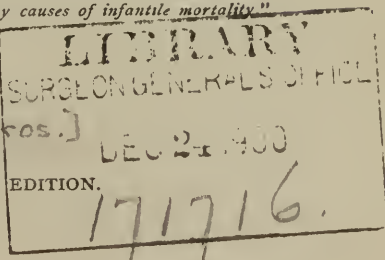 y causes of infantile mortality."
LIBRARY
SURGEON GENERAL'S OFFICE
ros.]
DEC 24 1900
EDITION.
171716.